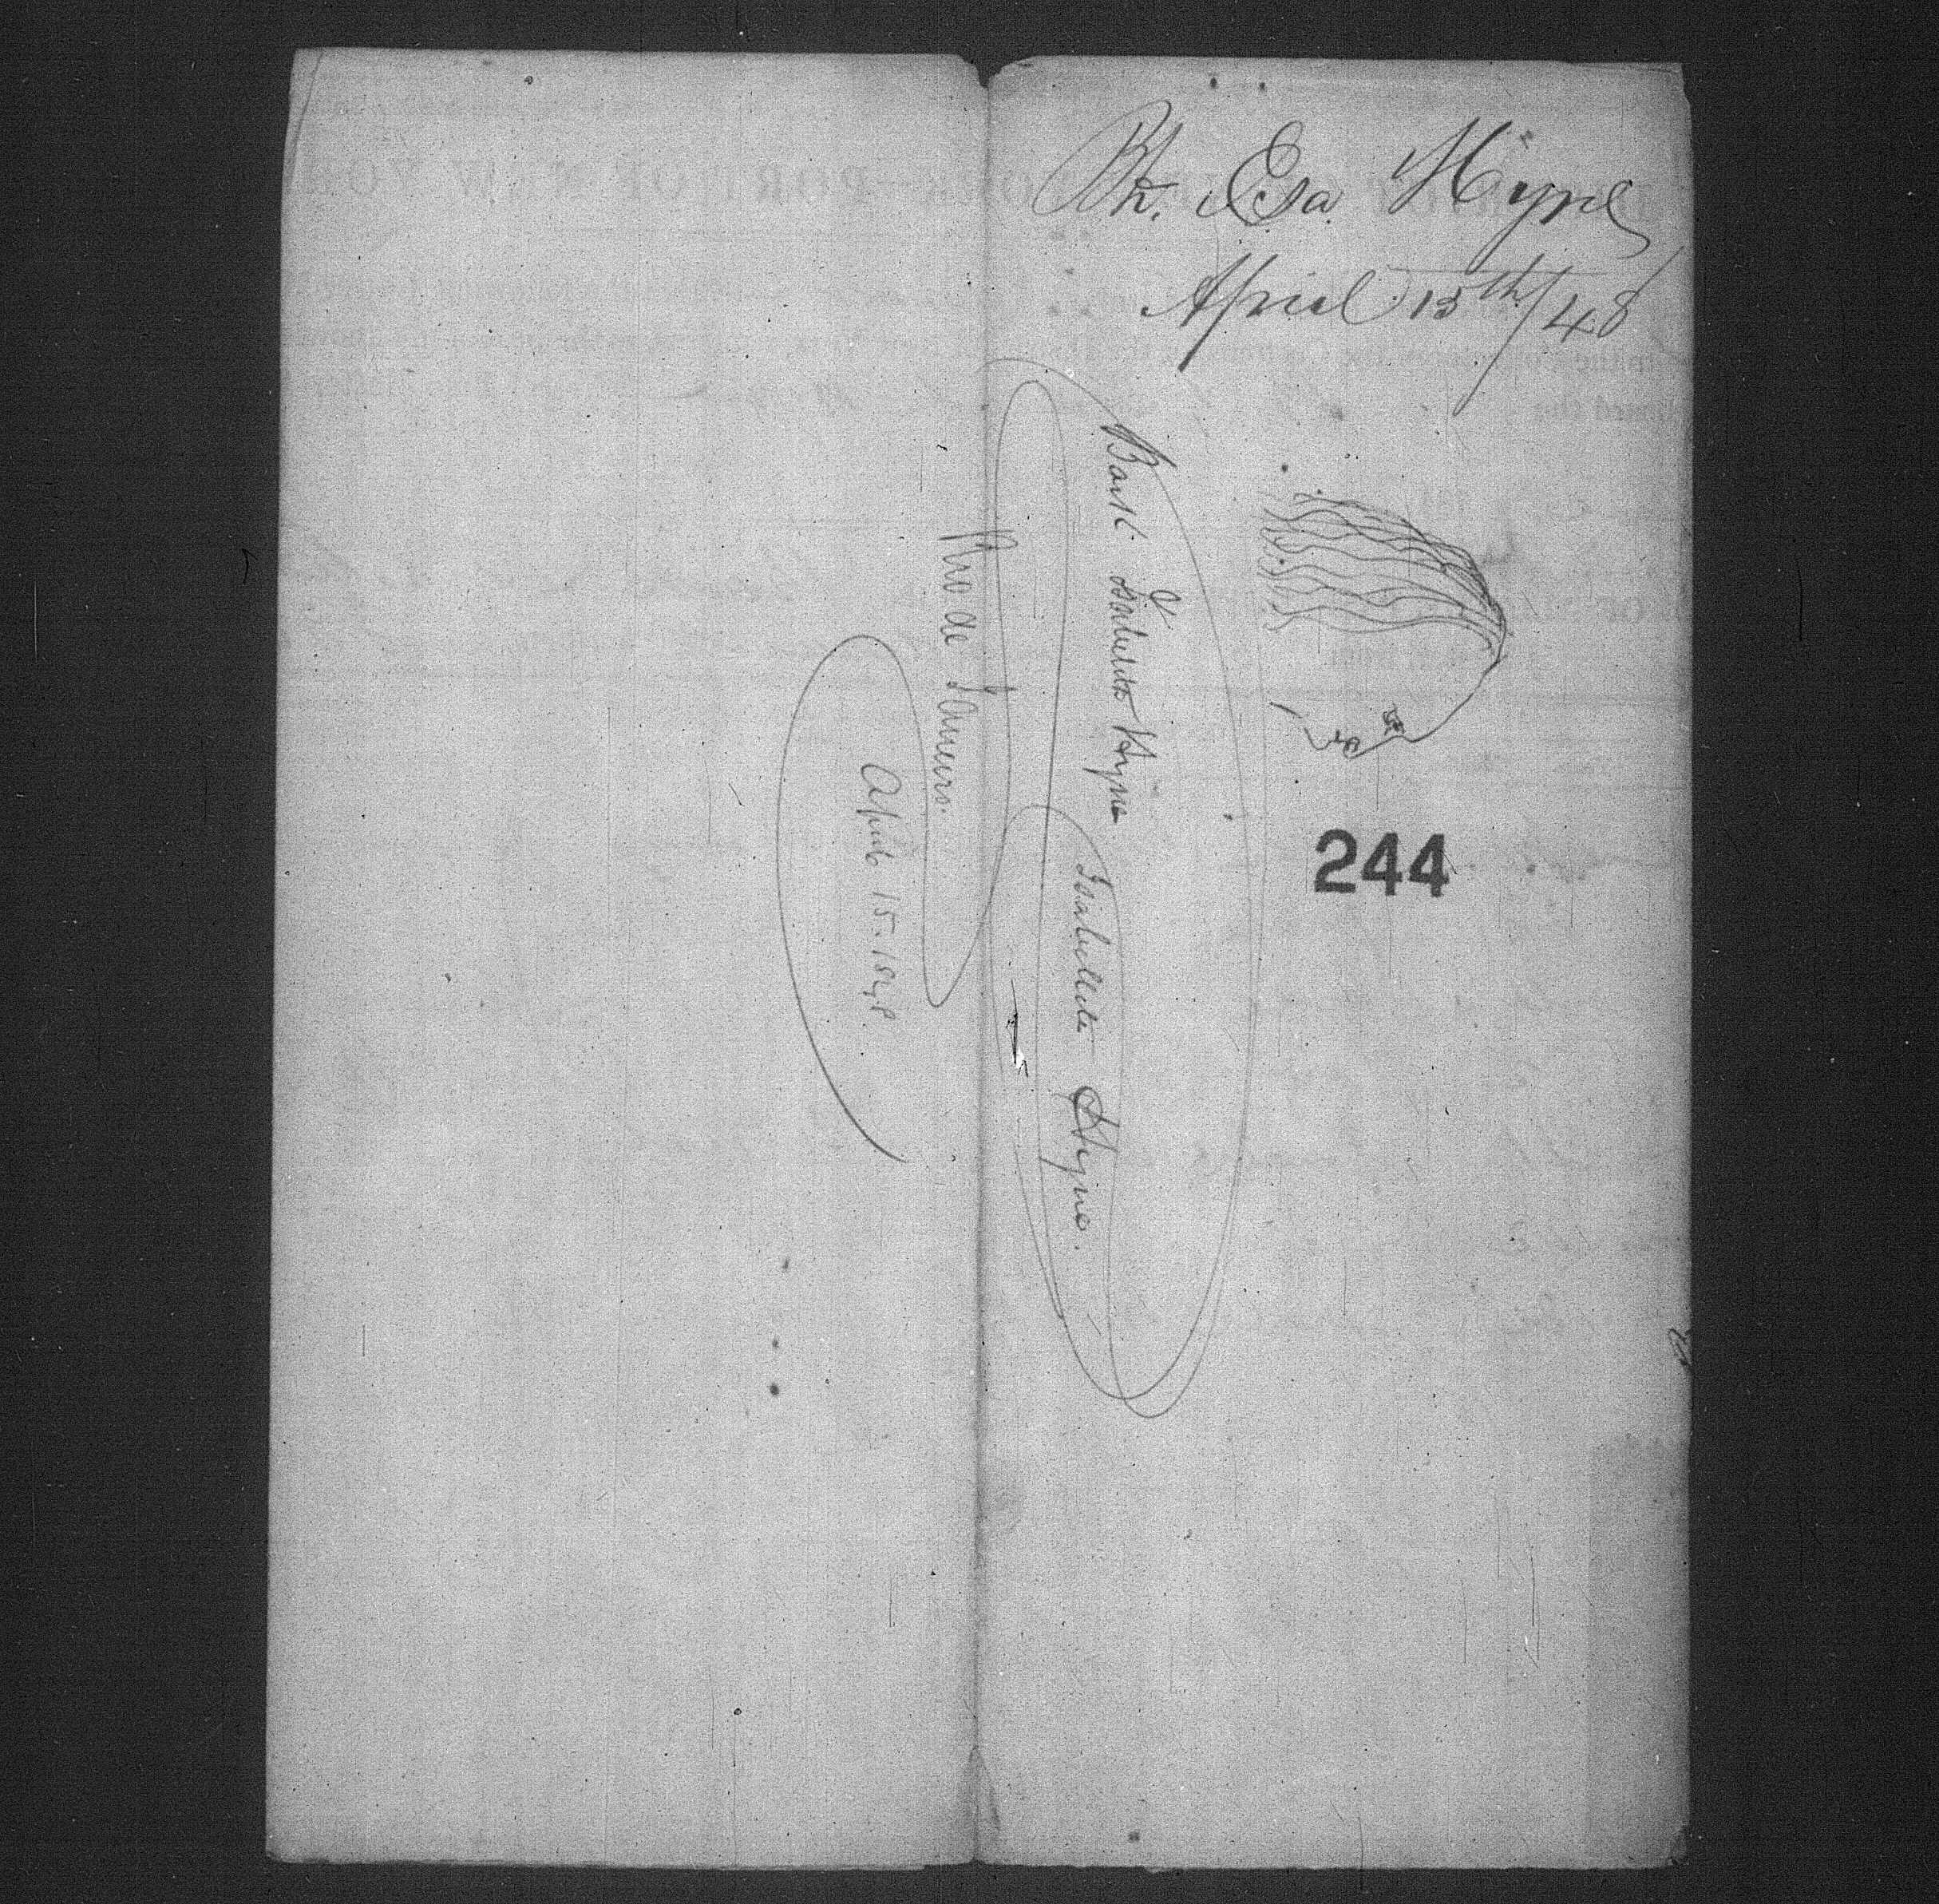 Bk. Isa Hyne
April 15th/48
Bark Isabelita Hyne
Isabellita Hyne.
Rio de Janeiro.
April 15. 1848
244